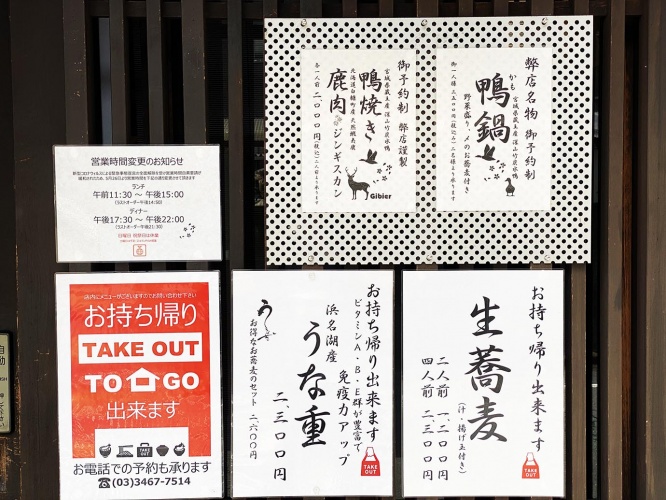 弊店名物 御予約制
宮城県蔵王産 深山竹炭水鴨
かも
鴨鍋
野菜盛り、〆のお蕎麦付き
御一人様 三五〇〇円(税込み)二名様より承ります
御予約制 弊店謹製
宮城県蔵王産 深山竹炭水鴨
鴨焼き
北海道白糠町産 天然蝦夷鹿
鹿肉ジンギスカン
各一人前 二〇〇〇円(税込)二人前より承ります
Gibier
営業時間変更のお知らせ
ランチ
午前11:30 ~ 午後15:00
(ラストオーダー午後14:50)
ディナー
午後17:30 ~ 午後22:00
(ラストオーダー午後21:30)
日曜日 祝祭日は休業
店内にメニューがございますのでお問い合わせ下さい
お持ち帰り
TAKE OUT
TO GO
出来ます
TAKE OUT
お電話での予約も承ります
(03)3467-7514
お持ち帰り出来ます
ビタミンA・B・E群が豊富で
免疫力アップ
浜名湖産
うな重
二、三〇〇円
うなぎ
お得なお蕎麦のセット 二、六〇〇円
TAKE OUT
お持ち帰り出来ます
生蕎麦
(汁・揚げ玉付き)
二人前 一、二〇〇円
四人前 二、三〇〇円
TAKE OUT
自動